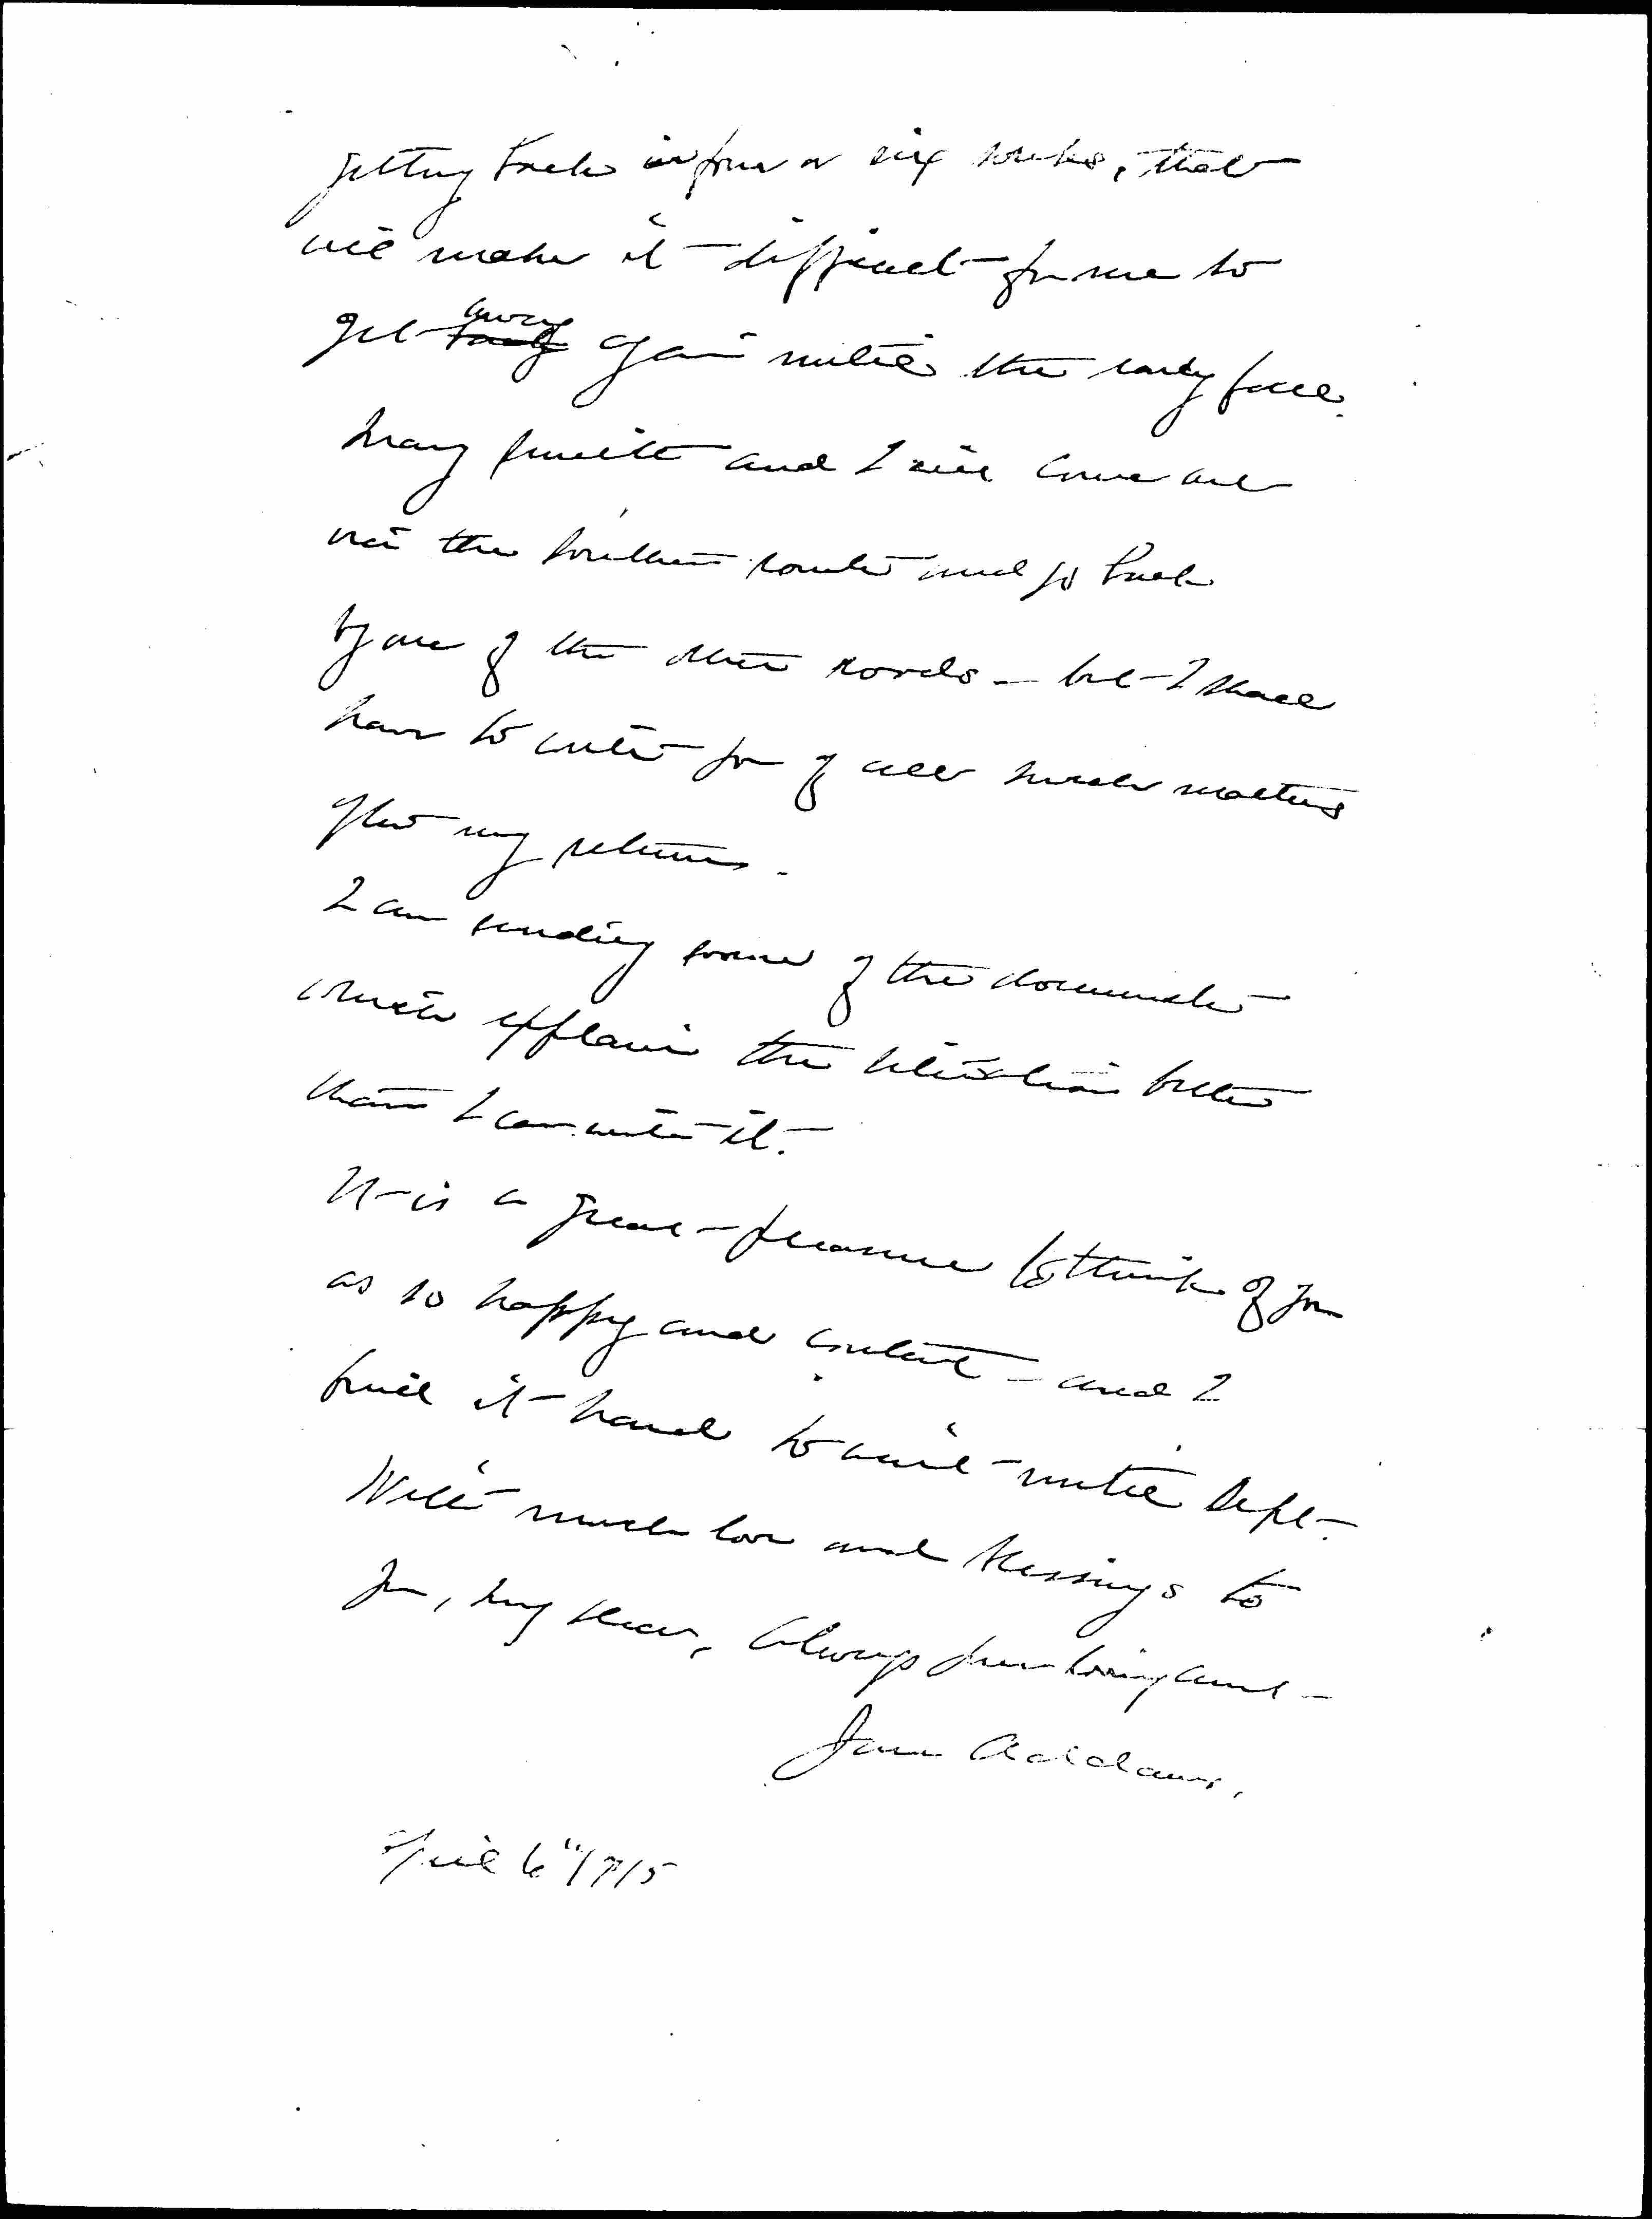 getting back in four or six weeks, that
will make it difficult for me to
get back away again until the early fall.
Mary Smith and I will come out
via the Southern route and go back
by one of the other roads – but I shall
have to write you of all such matters
after my return.
I am sending some of the documents
which explain the situation better
than I can write it.
It is a great pleasure to think of you
as so happy and content – and I
find it hard to wait until Sept.
With much love and blessings to
you, my dear, always your loving aunt –
Jane Addams.
April 6" 1915